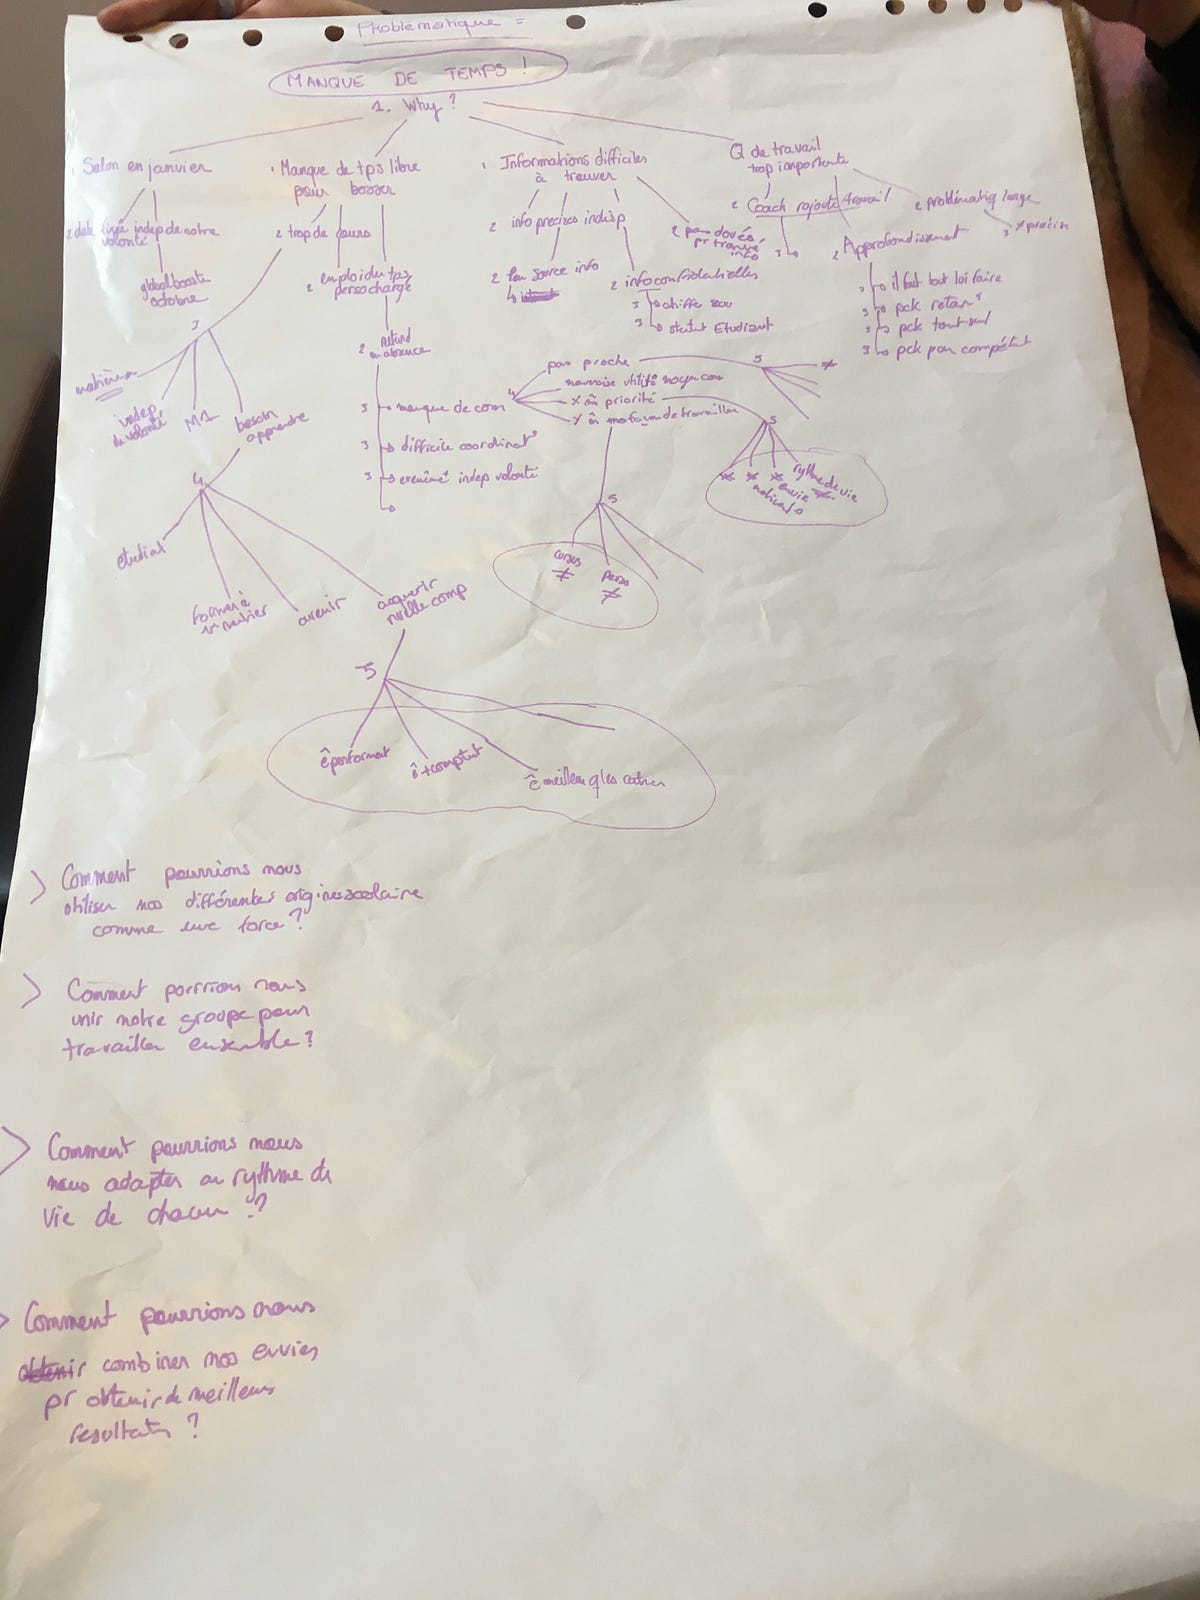 Problématique =
MANQUE DE TEMPS !
1. Why ?
1 Salon en janvier
2 date figé
indep de notre
volonté
global booste
octobre
1 Manque de tps libre
pour bosser
2 trop de cours
2 emploi du tps
perso chargé
2 retard
ou absence
3 manque de com
3 difficile coordinat°
3 indep volonté
1 Informations difficiles
à trouver
2 info precises indisp
2 peu source info
2 info confidentielles
3 chiffe
3 statut Etudiant
2 pas doués
pr trouver
info
Q de travail
trop importante
2 Coach rajoute travail
3
2 Approfondissement
3 il faut tout lui faire
3 pck retar
3 pck tout seul
3 pck pas compétent
2 problématiq large
3 ≠ précis
3
matières
indep
de volonté
M1
besoin
apprendre
4
pas proche
mauvaise utilité moyen com
x m̂ priorité
x m̂ façon de travailler
5
≠
5
≠ ≠ ≠
envie
rythme de vie
≠
5
cursus
≠
perso
≠
4
etudiant
former à
1 métier
avenir
acquerir
nvelle comp
5
ê performant
ê + comptent
ê meilleur q les autres
> Comment pourrions nous
utiliser nos différentes origines scolaire
comme une force ?
> Comment porrrions nous
unir notre groupe pour
travailler ensemble ?
> Comment pourrions nous
nous adapter au rythme de
vie de chacun ?
> Comment pourrions nous
obtenir combiner nos envies
pr obtenir de meilleurs
resultats ?